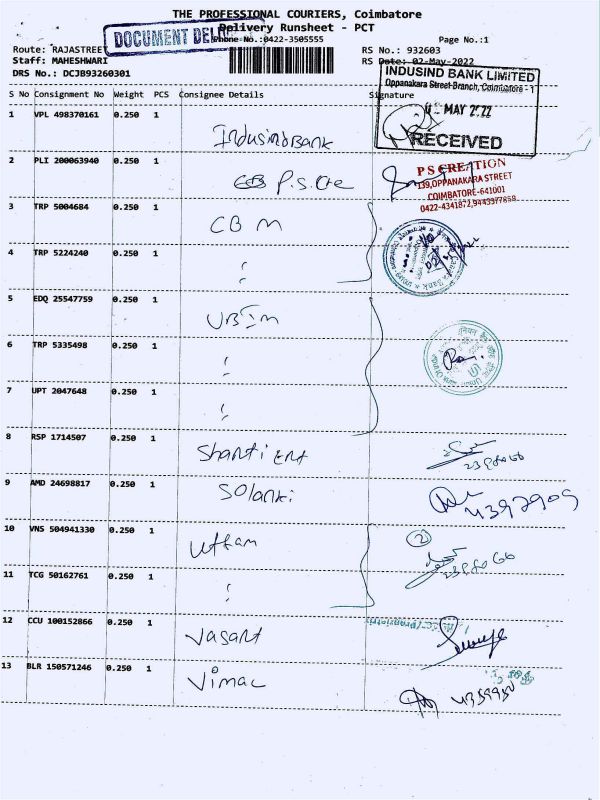 THE PROFESSIONAL COURIERS, Coimbatore
Delivery Runsheet - PCT
DOCUMENT DEL
Phone No.:0422-3505555
Page No.:1
Route: RAJASTREET
RS No.: 932603
Staff: MAHESHWARI
RS Date: 02-May-2022
DRS No.: DCJB93260301
INDUSIND BANK LIMITED
Oppanakara Street-Branch, Coimbatore - 1
MAY 2022
RECEIVED
S No Consignment No Weight PCS Consignee Details Signature
1 VPL 498370161 0.250 1
IndusindBank
2 PLI 200063940 0.250 1
P.S.Cre
P S CREATION
139, OPPANAKARA STREET
COIMBATORE-641001
0422-4341872, 9443377858
3 TRP 5004684 0.250 1
CBM
4 TRP 5224240 0.250 1
5 EDQ 25547759 0.250 1
UBIM
6 TRP 5335498 0.250 1
7 UPT 2047648 0.250 1
8 RSP 1714507 0.250 1
Shanti Ent
9 AMD 24698817 0.250 1
Solanki
4397909
10 VNS 504941330 0.250 1
Uttam
2
11 TCG 50162761 0.250 1
12 CCU 100152866 0.250 1
Vasant
13 BLR 150571246 0.250 1
Vimal